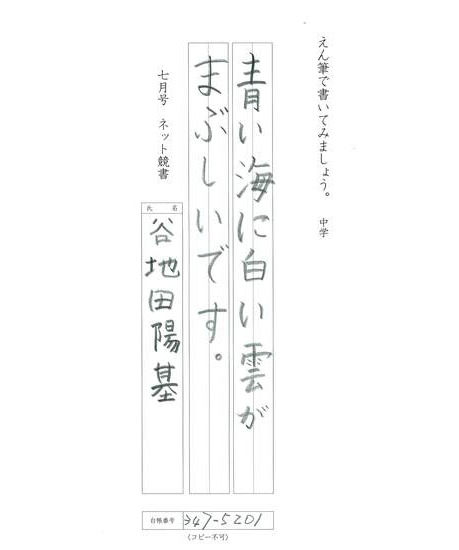 えん筆で書いてみましょう。 中学
青い海に白い雲が
まぶしいです。
七月号 ネット競書
氏名
谷地田陽基
台帳番号 347-5201
(コピー不可)